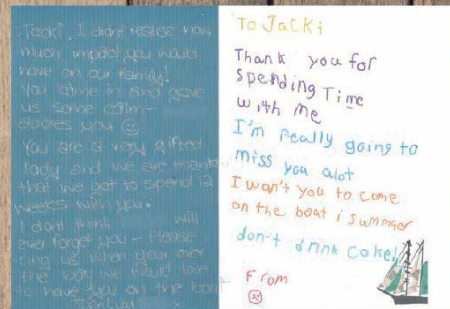 Jacki, I didnt realise how
much impact you would
have on our family!
You came in and gave
us some calm -
adores you
You are a very gifted
lady and we are thankful
that we got to spend 12
weeks with you.
I dont think will
ever forget you - Please
ring us when your over
the way we would love
to have you on the boat
x
To Jacki
Thank you for
Spending Time
with Me
I'm really going to
miss you alot
I wan't you to come
on the boat i summer
don't drink coke!
From